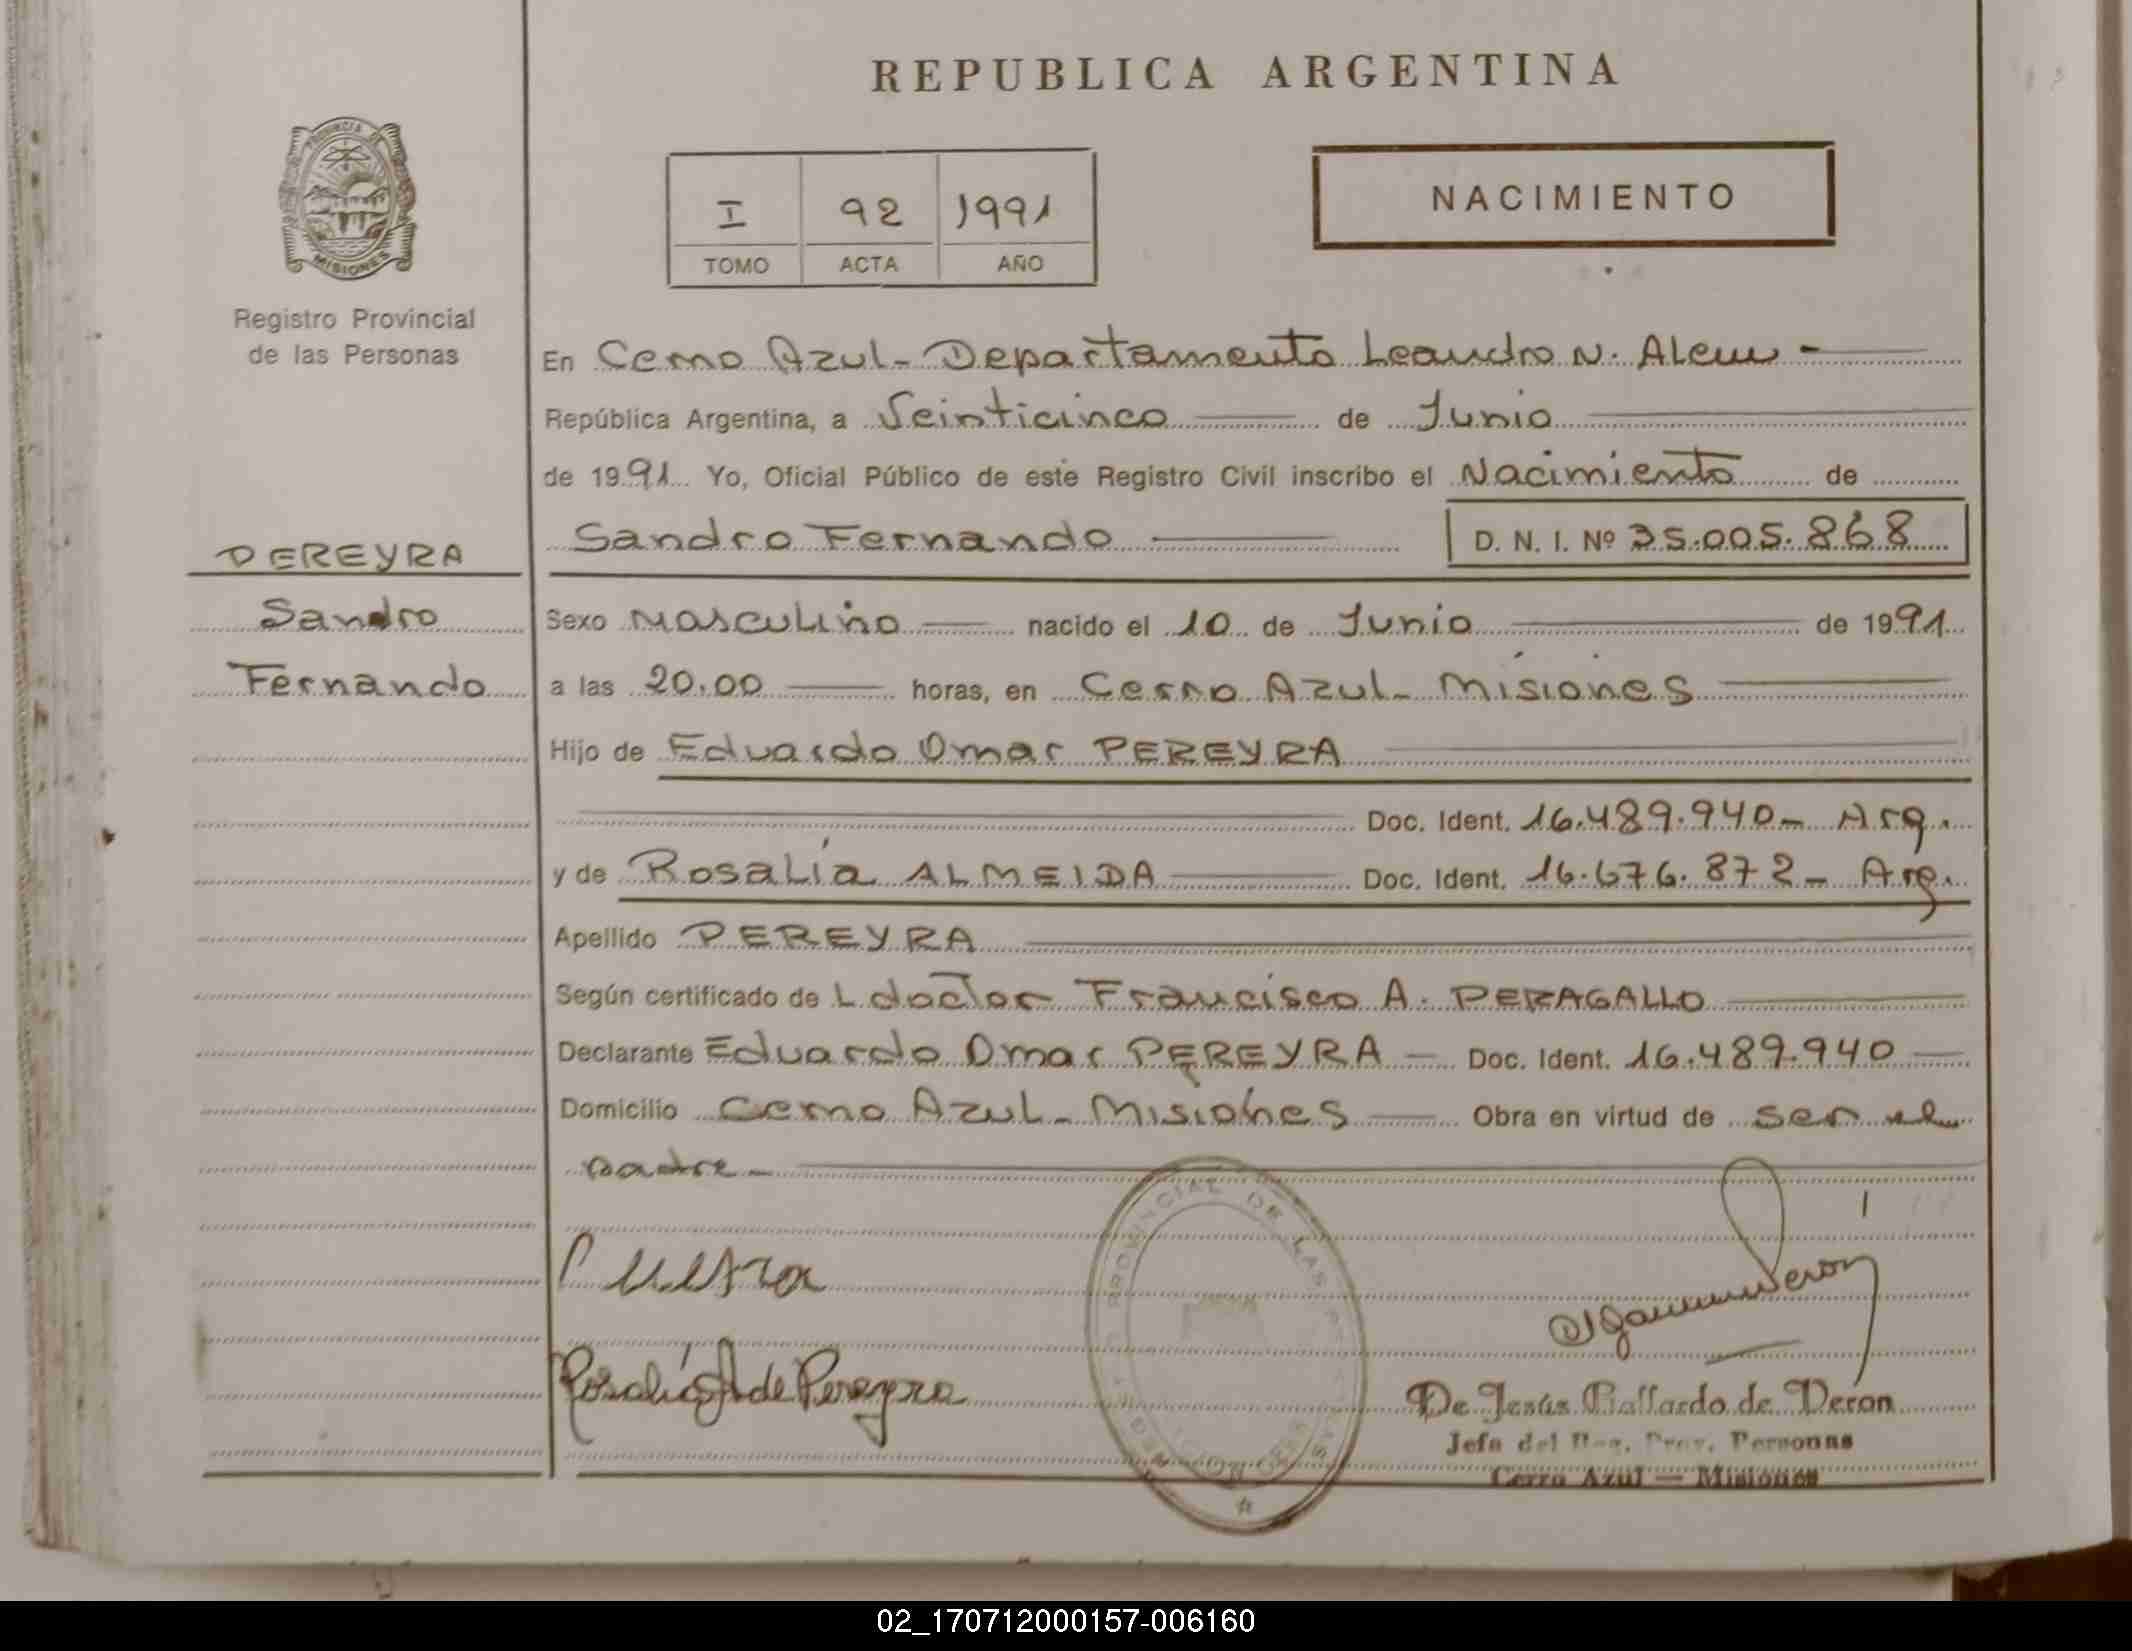 REPUBLICA ARGENTINA
PROVINCIA DE
MISIONES
Registro Provincial
de las Personas
I 92 1991
TOMO ACTA AÑO
NACIMIENTO
En Cerro Azul - Departamento Leandro N. Alem -
República Argentina, a Veinticinco de Junio
de 1991 Yo, Oficial Público de este Registro Civil inscribo el Nacimiento de
PEREYRA
Sandro Fernando D. N. I. Nº 35.005.868
Sandro
Fernando
Sexo Masculino nacido el 10 de Junio de 1991
a las 20.00 horas, en Cerro Azul - Misiones
Hijo de Eduardo Omar PEREYRA
Doc. Ident. 16.489.940 - Arg.
y de Rosalía ALMEIDA Doc. Ident. 16.676.872 - Arg.
Apellido PEREYRA
Según certificado de L doctor Francisco A. PERAGALLO
Declarante Eduardo Omar PEREYRA - Doc. Ident. 16.489.940
Domicilio Cerro Azul - Misiones Obra en virtud de ser el
padre -
PROVINCIAL DE LAS
Rosalía A de Pereyra
De Jesús Gallardo de Deron
Jefa del Reg. Prov. Personas
Cerro Azul — Misiones
02_170712000157-006160